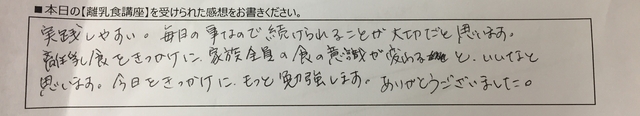 ■ 本日の【離乳食講座】を受けられた感想をお書きください。
実践しやすい。毎日の事なので続けられることが大切だと思います。
離乳食をきっかけに、家族全員の食の意識が変わると、いいなと
思います。今日をきっかけに、もっと勉強します。ありがとうございました。